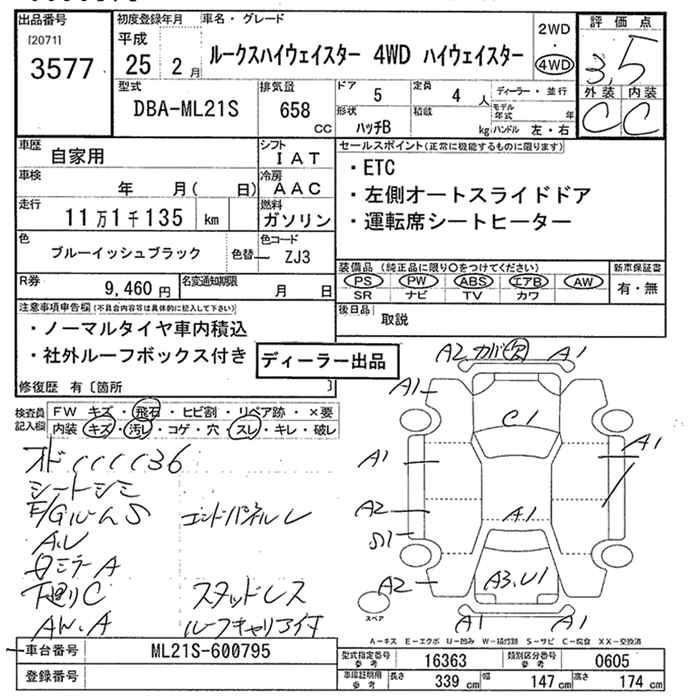 出品番号
[2071]
3577
初度登録年月
平成
25 2月
車名・グレード
ルークスハイウェイスター 4WD ハイウェイスター
2WD
・
4WD
評価点
3.5
外装 内装
C C
型式
DBA-ML21S
排気量
658
cc
ドア
5
定員
4 人
形状
ハッチB
積載
kg
ディーラー・並行
モデル年式 年
ハンドル 左・右
車歴
自家用
シフト
IAT
車検
年 月( 日)
冷房
AAC
走行
11万1千135 km
燃料
ガソリン
色
ブルーイッシュブラック
色替
色コード
ZJ3
R券
9,460 円
名変通知期限
月 日
セールスポイント(正常に機能するものに限ります)
・ETC
・左側オートスライドドア
・運転席シートヒーター
装備品(純正品に限り○をつけてください)
PS・PW・ABS・エアB・AW
SR ナビ TV カワ
新車保証書
有・無
後日品
取説
注意事項申告欄(不具合内容等は具体的に記入して下さい)
・ノーマルタイヤ車内積込
・社外ルーフボックス付き
ディーラー出品
修復歴 有〔箇所 〕
検査員
記入欄
FW キズ・飛石・ヒビ割・リペア跡・×要
内装 キズ・汚レ・コゲ・穴・スレ・キレ・破レ
シートシミ
エンドパネルU
A.U
ミラーA
下廻りC
スタッドレス
AW.A
ルーフキャリア付
A2
カバ欠
A1
A1
C1
A1
A1
A2
A1
S1
A2
A3.U1
スペア
A1
A1
A-キズ E-エクボ U-凹み W-補修跡 S-サビ C-腐食 XX-交換済
車台番号
ML21S-600795
登録番号
型式指定番号
参考
16363
類別区分番号
参考
0605
車庫証明用
参考
長さ 339 cm 幅 147 cm 高さ 174 cm